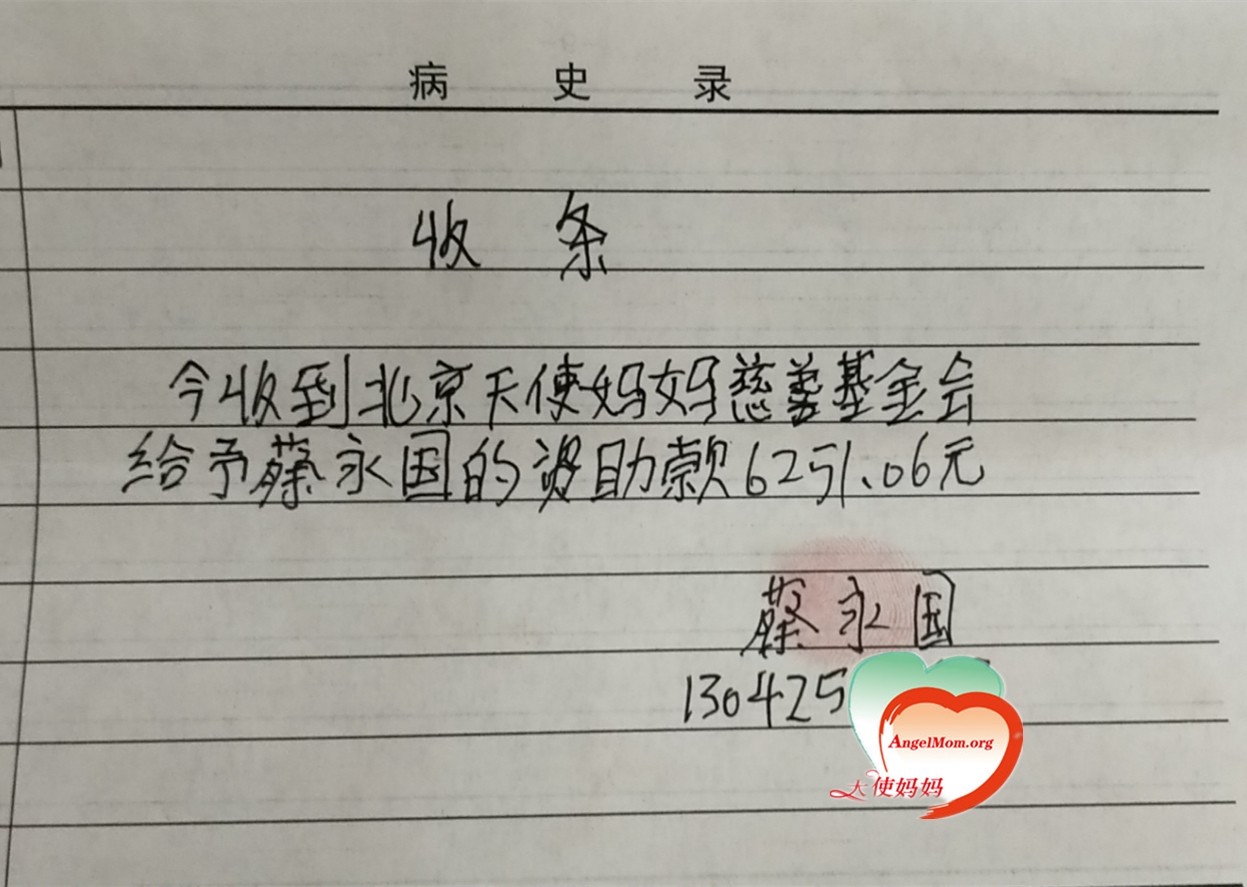 病 史 录
收 条
今收到北京天使妈妈慈善基金会
给予蔡永国的资助款6251.06元
蔡永国
130425
AngelMom.org
天使妈妈